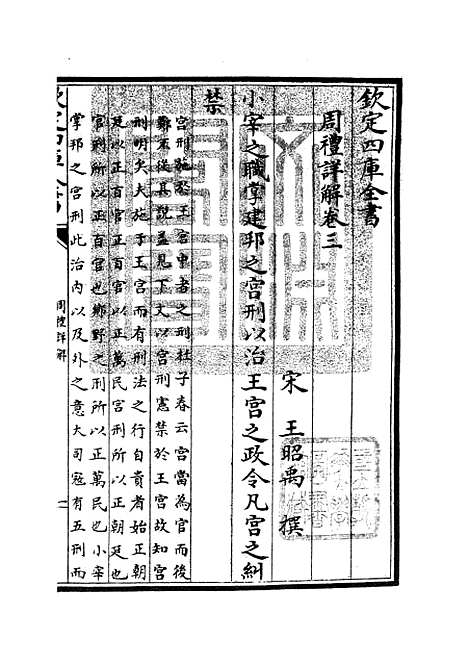 欽定四庫全書
周禮詳解卷三
宋 王昭禹 撰
小宰之職掌建邦之宫刑以治王宫之政令凡宫之糾
禁
宫刑施於王宫中者之刑杜子春云宫當為官而後
鄭不從其說蓋見下文以宫刑憲禁於王宫故知宫
刑明矣夫施于王宫而有刑法之行自貴者始正朝
廷以正百官正百官以正萬民宫刑所以正朝廷也
官刑所以正百官也鄉野之刑所以正萬民也小宰
掌邦之宫刑此治内以及外之意大司寇有五刑而
欽定四庫全書
周禮詳解
一